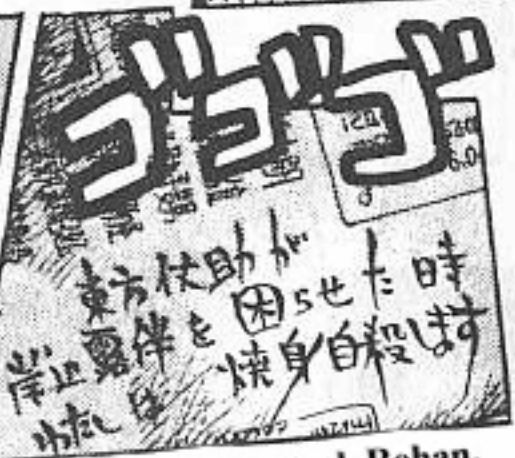 ゴゴゴ
東方仗助が
岸辺露伴を困らせた時
わたしは焼身自殺します
Rohan.